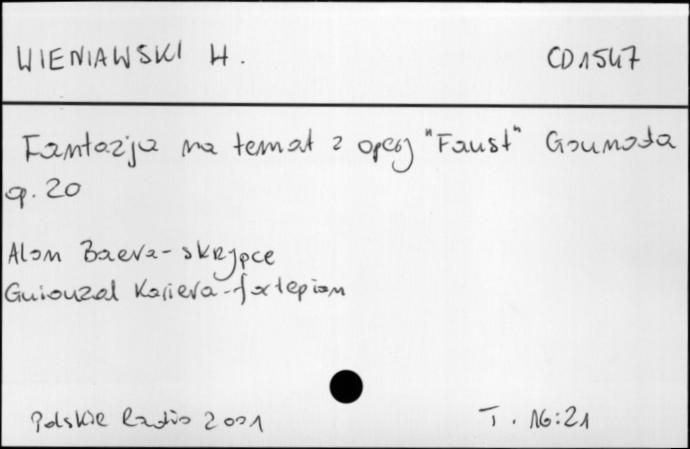 WIENIAWSKI H. CD1547
Fantazja na temat z opery "Faust" Gounoda
op. 20
Alan Baeva - skrzypce
Guiouzal Karieva - fortepian
Polskie Radio 2001 T. 16:21